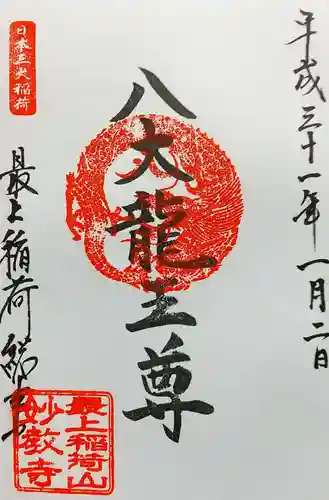 平成三十一年一月二日
八大龍王尊
日本三大稲荷
最上稲荷総本山
最上稲荷山
妙教寺